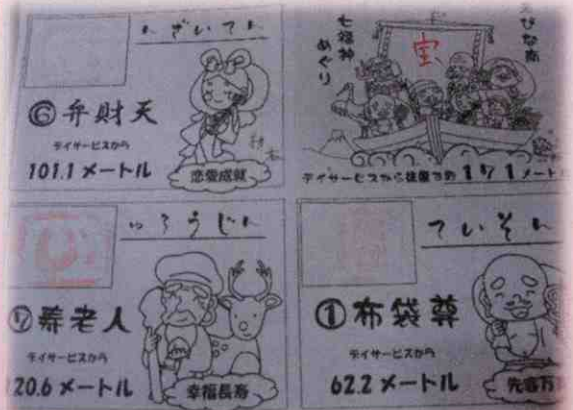 べざいてん
⑥弁財天
デイサービスから
101.1メートル
恋愛成就
えびな南
七福神
めぐり
宝
デイサービスから
171メート
ゅろうじん
⑦寿老人
デイサービスから
120.6メートル
幸福長寿
ていそん
①布袋尊
デイサービスから
62.2メートル